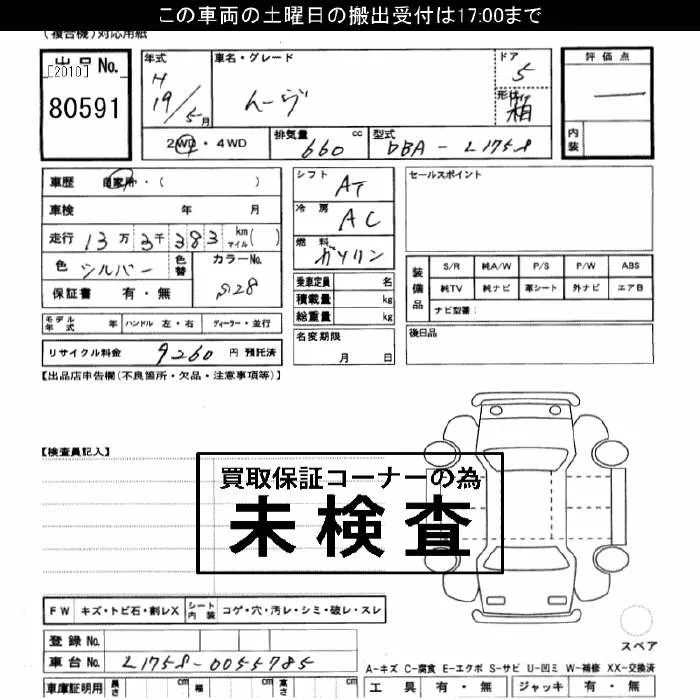 この車両の土曜日の搬出受付は17:00まで
(複合機)対応用紙
出品 No.
[2010]
80591
年式
H
19/5月
車名・グレード
ムーヴ
ドア
5
形状
箱
評価点
内装
2WD・4WD
排気量 cc
660
型式
DBA-L175S
車歴 自家用・( )
車検 年 月
走行 13万3千383 km マイル( )
色 シルバー
色替
カラーNo.
S28
保証書 有・無
シフト AT
冷房 AC
燃料 ガソリン
乗車定員 名
積載量 kg
総重量 kg
セールスポイント
装備品
S/R 純A/W P/S P/W ABS
純TV 純ナビ 革シート 外ナビ エアB
ナビ型番:
モデル年式 年 ハンドル 左・右 ディーラー・並行
名変期限
月 日
後日品
リサイクル料金 9260 円 預託済
【出品店申告欄(不良箇所・欠品・注意事項等)】
【検査員記入】
買取保証コーナーの為
未検査
FW キズ・トビ石・割レX シート内装 コゲ・穴・汚レ・シミ・破レ・スレ
登録No.
スペア
車台No. L175S-0055785
A-キズ C-腐食 E-エクボ S-サビ U-凹ミ W-補修 XX-交換済
車庫証明用 長さ cm 幅 cm 高さ cm
工具 有・無 ジャッキ 有・無